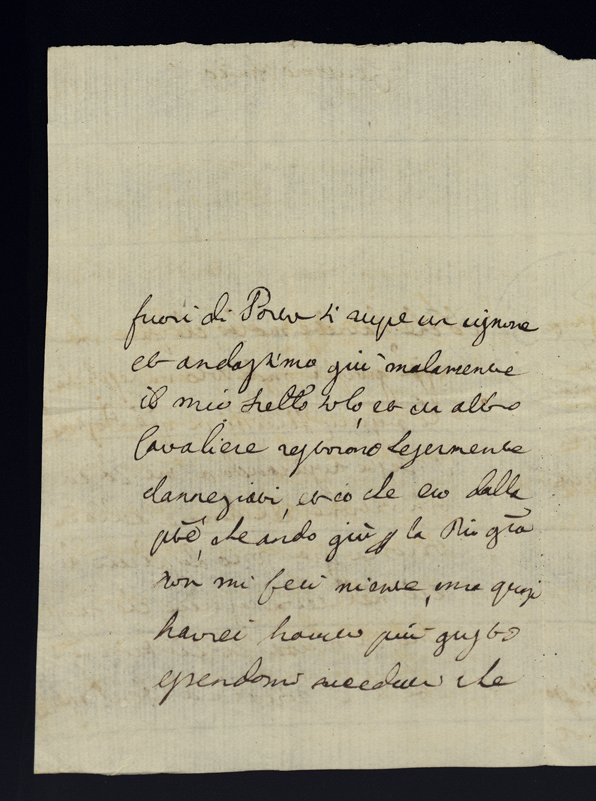 fuori di Porta si rupe un cignone
et andassimo giù malamente
il mio Fratello solo et un altro
Cavaliere restorono legermente
dannegiati, et io che ero dalla
pte, che andò giù la Dio gra
non mi feci niente, ma quasi
havrei havuto più gusto
essendomi succeduti che